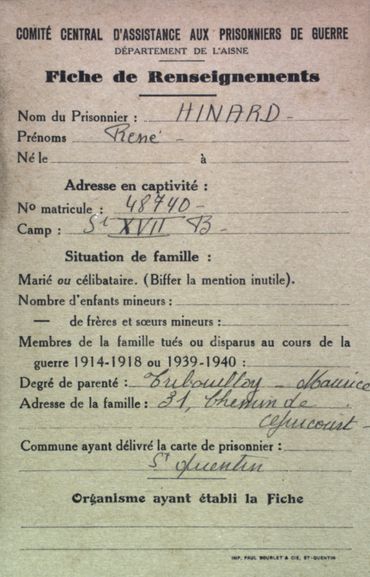 COMITÉ CENTRAL D'ASSISTANCE AUX PRISONNIERS DE GUERRE
DÉPARTEMENT DE L'AISNE
Fiche de Renseignements
Nom du Prisonnier : HINARD -
Prénoms René -
Né le à
Adresse en captivité :
No matricule : 48740 -
Camp : St XVII B -
Situation de famille :
Marié ou célibataire. (Biffer la mention inutile).
Nombre d'enfants mineurs :
— de frères et sœurs mineurs :
Membres de la famille tués ou disparus au cours de la
guerre 1914-1918 ou 1939-1940 :
Degré de parenté : Tribouilloy - Maurice
Adresse de la famille : 31, Chemin de
-
Commune ayant délivré la carte de prisonnier :
St Quentin
Organisme ayant établi la Fiche
IMP. PAUL BOURLET & CIE, ST-QUENTIN